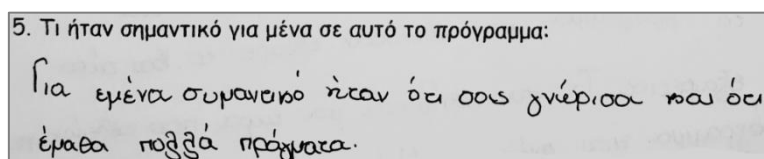 5. Τι ήταν σημαντικό για μένα σε αυτό το πρόγραμμα:
Για εμένα συμαντικό ήταν ότι σας γνώρισα και ότι
έμαθα πολλά πράγματα.